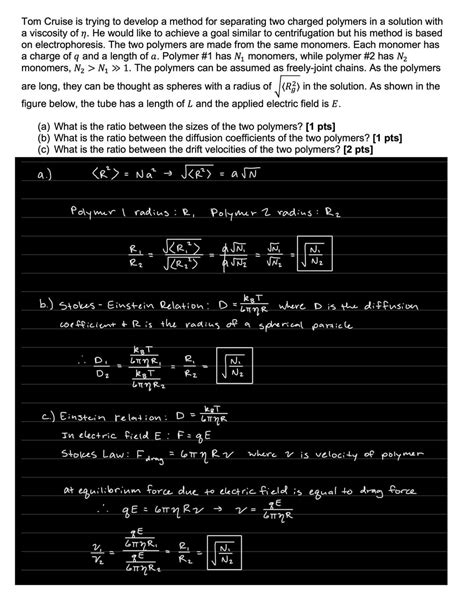 Tom Cruise is trying to develop a method for separating two charged polymers in a solution with
a viscosity of η. He would like to achieve a goal similar to centrifugation but his method is based
on electrophoresis. The two polymers are made from the same monomers. Each monomer has
a charge of q and a length of a. Polymer #1 has N₁ monomers, while polymer #2 has N₂
monomers, N₂ > N₁ ≫ 1. The polymers can be assumed as freely-joint chains. As the polymers
are long, they can be thought as spheres with a radius of √⟨R_g²⟩ in the solution. As shown in the
figure below, the tube has a length of L and the applied electric field is E.
(a) What is the ratio between the sizes of the two polymers? [1 pts]
(b) What is the ratio between the diffusion coefficients of the two polymers? [1 pts]
(c) What is the ratio between the drift velocities of the two polymers? [2 pts]
a.) <R²> = Na² → √<R²> = a√N
Polymer 1 radius : R₁ Polymer 2 radius : R₂
R₁/R₂ = √<R₁²>/√<R₂²> = a√N₁/a√N₂ = √N₁/√N₂ = √(N₁/N₂)
b.) Stokes - Einstein Relation : D = k_BT/6πηR where D is the diffusion
coefficient + R is the radius of a spherical particle
∴ D₁/D₂ = (k_BT/6πηR₁)/(k_BT/6πηR₂) = R₁/R₂ = √(N₁/N₂)
c.) Einstein relation : D = k_BT/6πηR
In electric field E : F = qE
Stokes Law : F_drag = 6πηRv where v is velocity of polymer
at equilibrium force due to electric field is equal to drag force
∴ qE = 6πηRv → v = qE/6πηR
v₁/v₂ = (qE/6πηR₁)/(qE/6πηR₂) = R₁/R₂ = √(N₁/N₂)